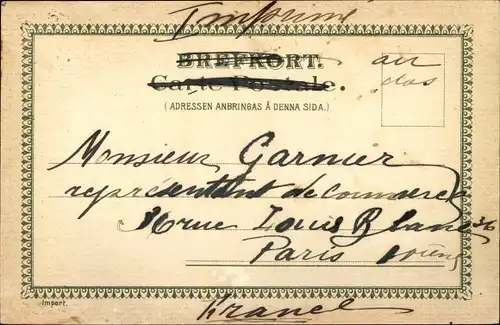 Imprimé
BREFKORT. au
Carte Postale. dos
(ADRESSEN ANBRINGAS Å DENNA SIDA.)
Monsieur Garnier
représentant de commerce
36 rue Louis Blanc 36
Paris
Import.